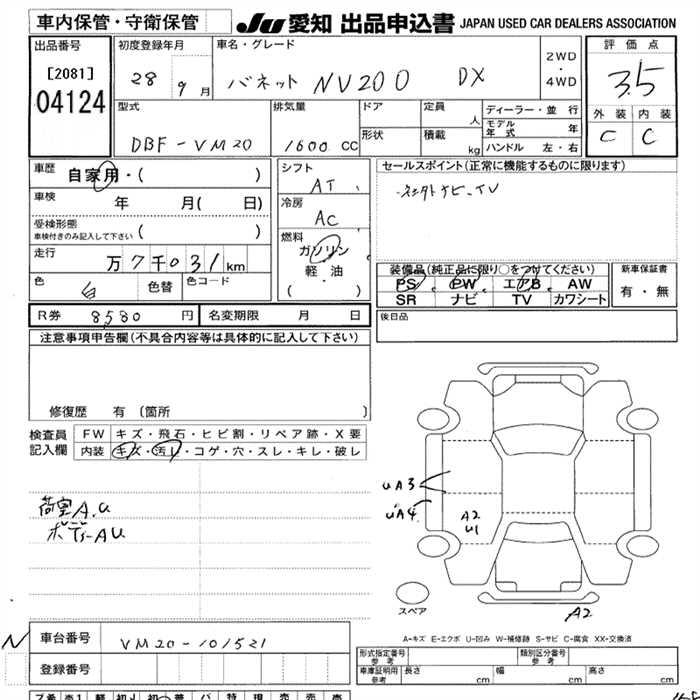 車内保管・守衛保管
JU 愛知 出品申込書 JAPAN USED CAR DEALERS ASSOCIATION
出品番号 [2081] 04124
初度登録年月 28 年 9 月
車名・グレード バネット NV200 DX
2WD・4WD
評価点 3.5
外装 C 内装 C
型式 DBF-VM20
排気量 1600 CC
ドア 形状
定員 人
積載 kg
ディーラー・並行
モデル年式 年
ハンドル 左・右
車歴 自家用・( )
車検 年 月( 日)
受検形態 車検付きのみ記入して下さい ( )
走行 万 7 千 0 3 1 km
色 白 色替 色コード
シフト AT
冷房 AC
燃料 ガソリン
軽・油
( ・ )
セールスポイント(正常に機能するものに限ります)
ナビ、TV
装備品(純正品に限り○をつけてください)
PS PW エアB AW
SR ナビ TV カワシート
新車保証書 有・無
後日品
R券 8580 円 名変期限 月 日
注意事項申告欄(不具合内容等は具体的に記入して下さい)
修復歴 有〔箇所 〕
検査員記入欄
FW キズ・飛石・ヒビ割・リペア跡・X要
内装 キズ・汚レ・コゲ・穴・スレ・キレ・破レ
荷室A.U
ボディーAU
UA3
UA4
A2
U1
A2
スペア
A-キズ E-エクボ U-凹み W-補修跡 S-サビ C-腐食 XX-交換済
N 車台番号 VM20-101521
登録番号
形式指定番号 参考 類別区分番号 参考
車庫証明用 参考 長さ cm 幅 cm 高さ cm